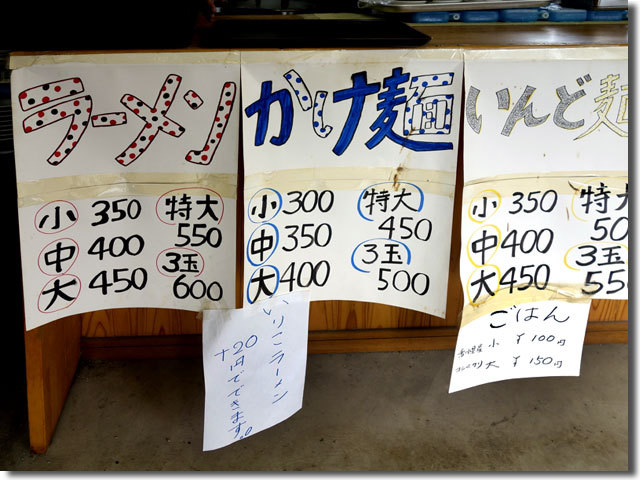 ラーメン
小 350
中 400
大 450
特大
550
3玉
600
かけ麺
小 300
中 350
大 400
特大
450
3玉
500
いんど麺
小 350
中 400
大 450
特大
50
3玉
55
いりこラーメン
+20円でできます。
ごはん
小 ¥100円
大 ¥150円